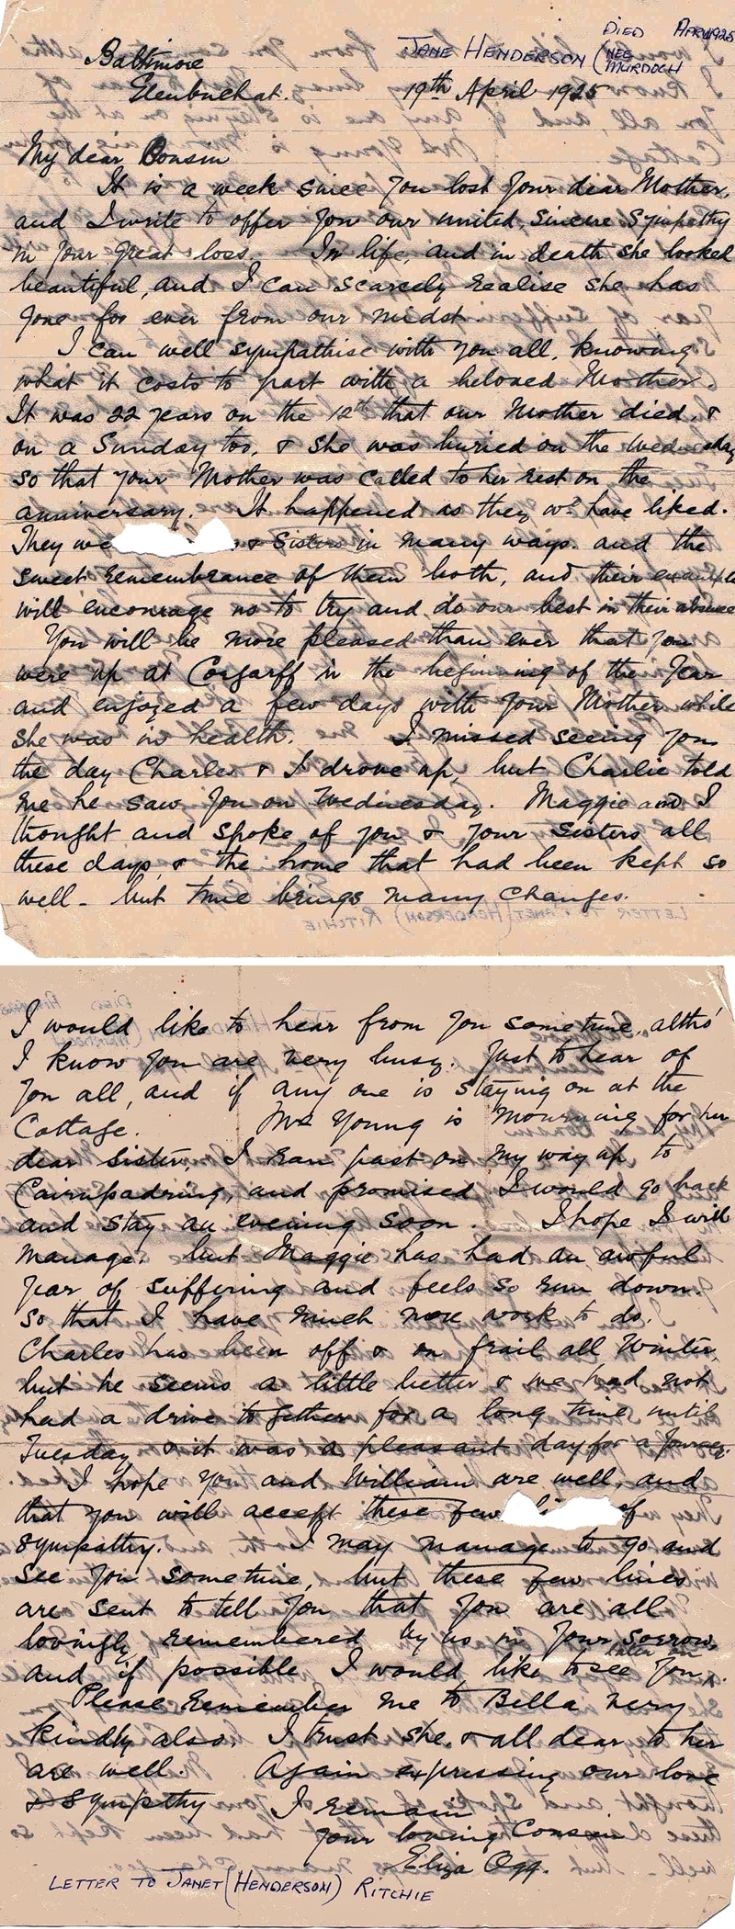 JANE HENDERSON (NEE MURDOCH
DIED APRIL 1925
Baltimore
Glenbuchat.
19th April 1925
My dear Cousin
It is a week since you lost your dear Mother,
and I write to offer you our united, sincere sympathy
in your great loss. In life, and in death she looked
beautiful, and I can scarcely realise she has
gone for ever from our midst.
I can well sympathise with you all, knowing
what it costs to part with a beloved Mother.
It was 22 years on the 12th that our Mother died, &
on a Sunday too, & she was buried on the Wednesday
so that your Mother was called to her rest on the
anniversary. It happened as they wd have liked.
They we & Sisters in many ways. and the
sweet remembrance of them both, and their example
will encourage us to try and do our best in their absence
You will be more pleased than ever that you
were up at Corgarff in the beginning of the Year
and enjoyed a few days with your Mother while
she was in health. I missed seeing you
the day Charles & I drove up, but Charlie told
me he saw you on Wednesday. Maggie and I
thought and spoke of you & your sisters all
these days, & the home that had been kept so
well - but time brings many changes.
I would like to hear from you sometime, altho'
I know you are very busy. Just to hear of
you all, and if any one is staying on at the
Cottage. Mrs Young is mourning for her
dear sister. I ran past on my way up to
Cairnpadring, and promised I would go back
and stay an evening soon. I hope I will
manage, but Maggie has had an awful
year of suffering and feels so run down.
so that I have much more work to do.
Charles has been off & on frail all Winter
but he seems a little better & we had not
had a drive together for a long time until
Tuesday & it was a pleasant day for a Journey.
I hope you and William are well, and
that you will accept these few of
sympathy. I may manage to go and
see you sometime, but these few lines
are sent to tell you that you are all
lovingly remembered by us in your sorrow,
and if possible I would like to see you later on.
Please remember me to Bella very
kindly also. I trust she & all dear to her
are well. Again expressing our love
& sympathy I remain
your loving Cousin
Eliza Ogg.
LETTER TO JANET (HENDERSON) RITCHIE